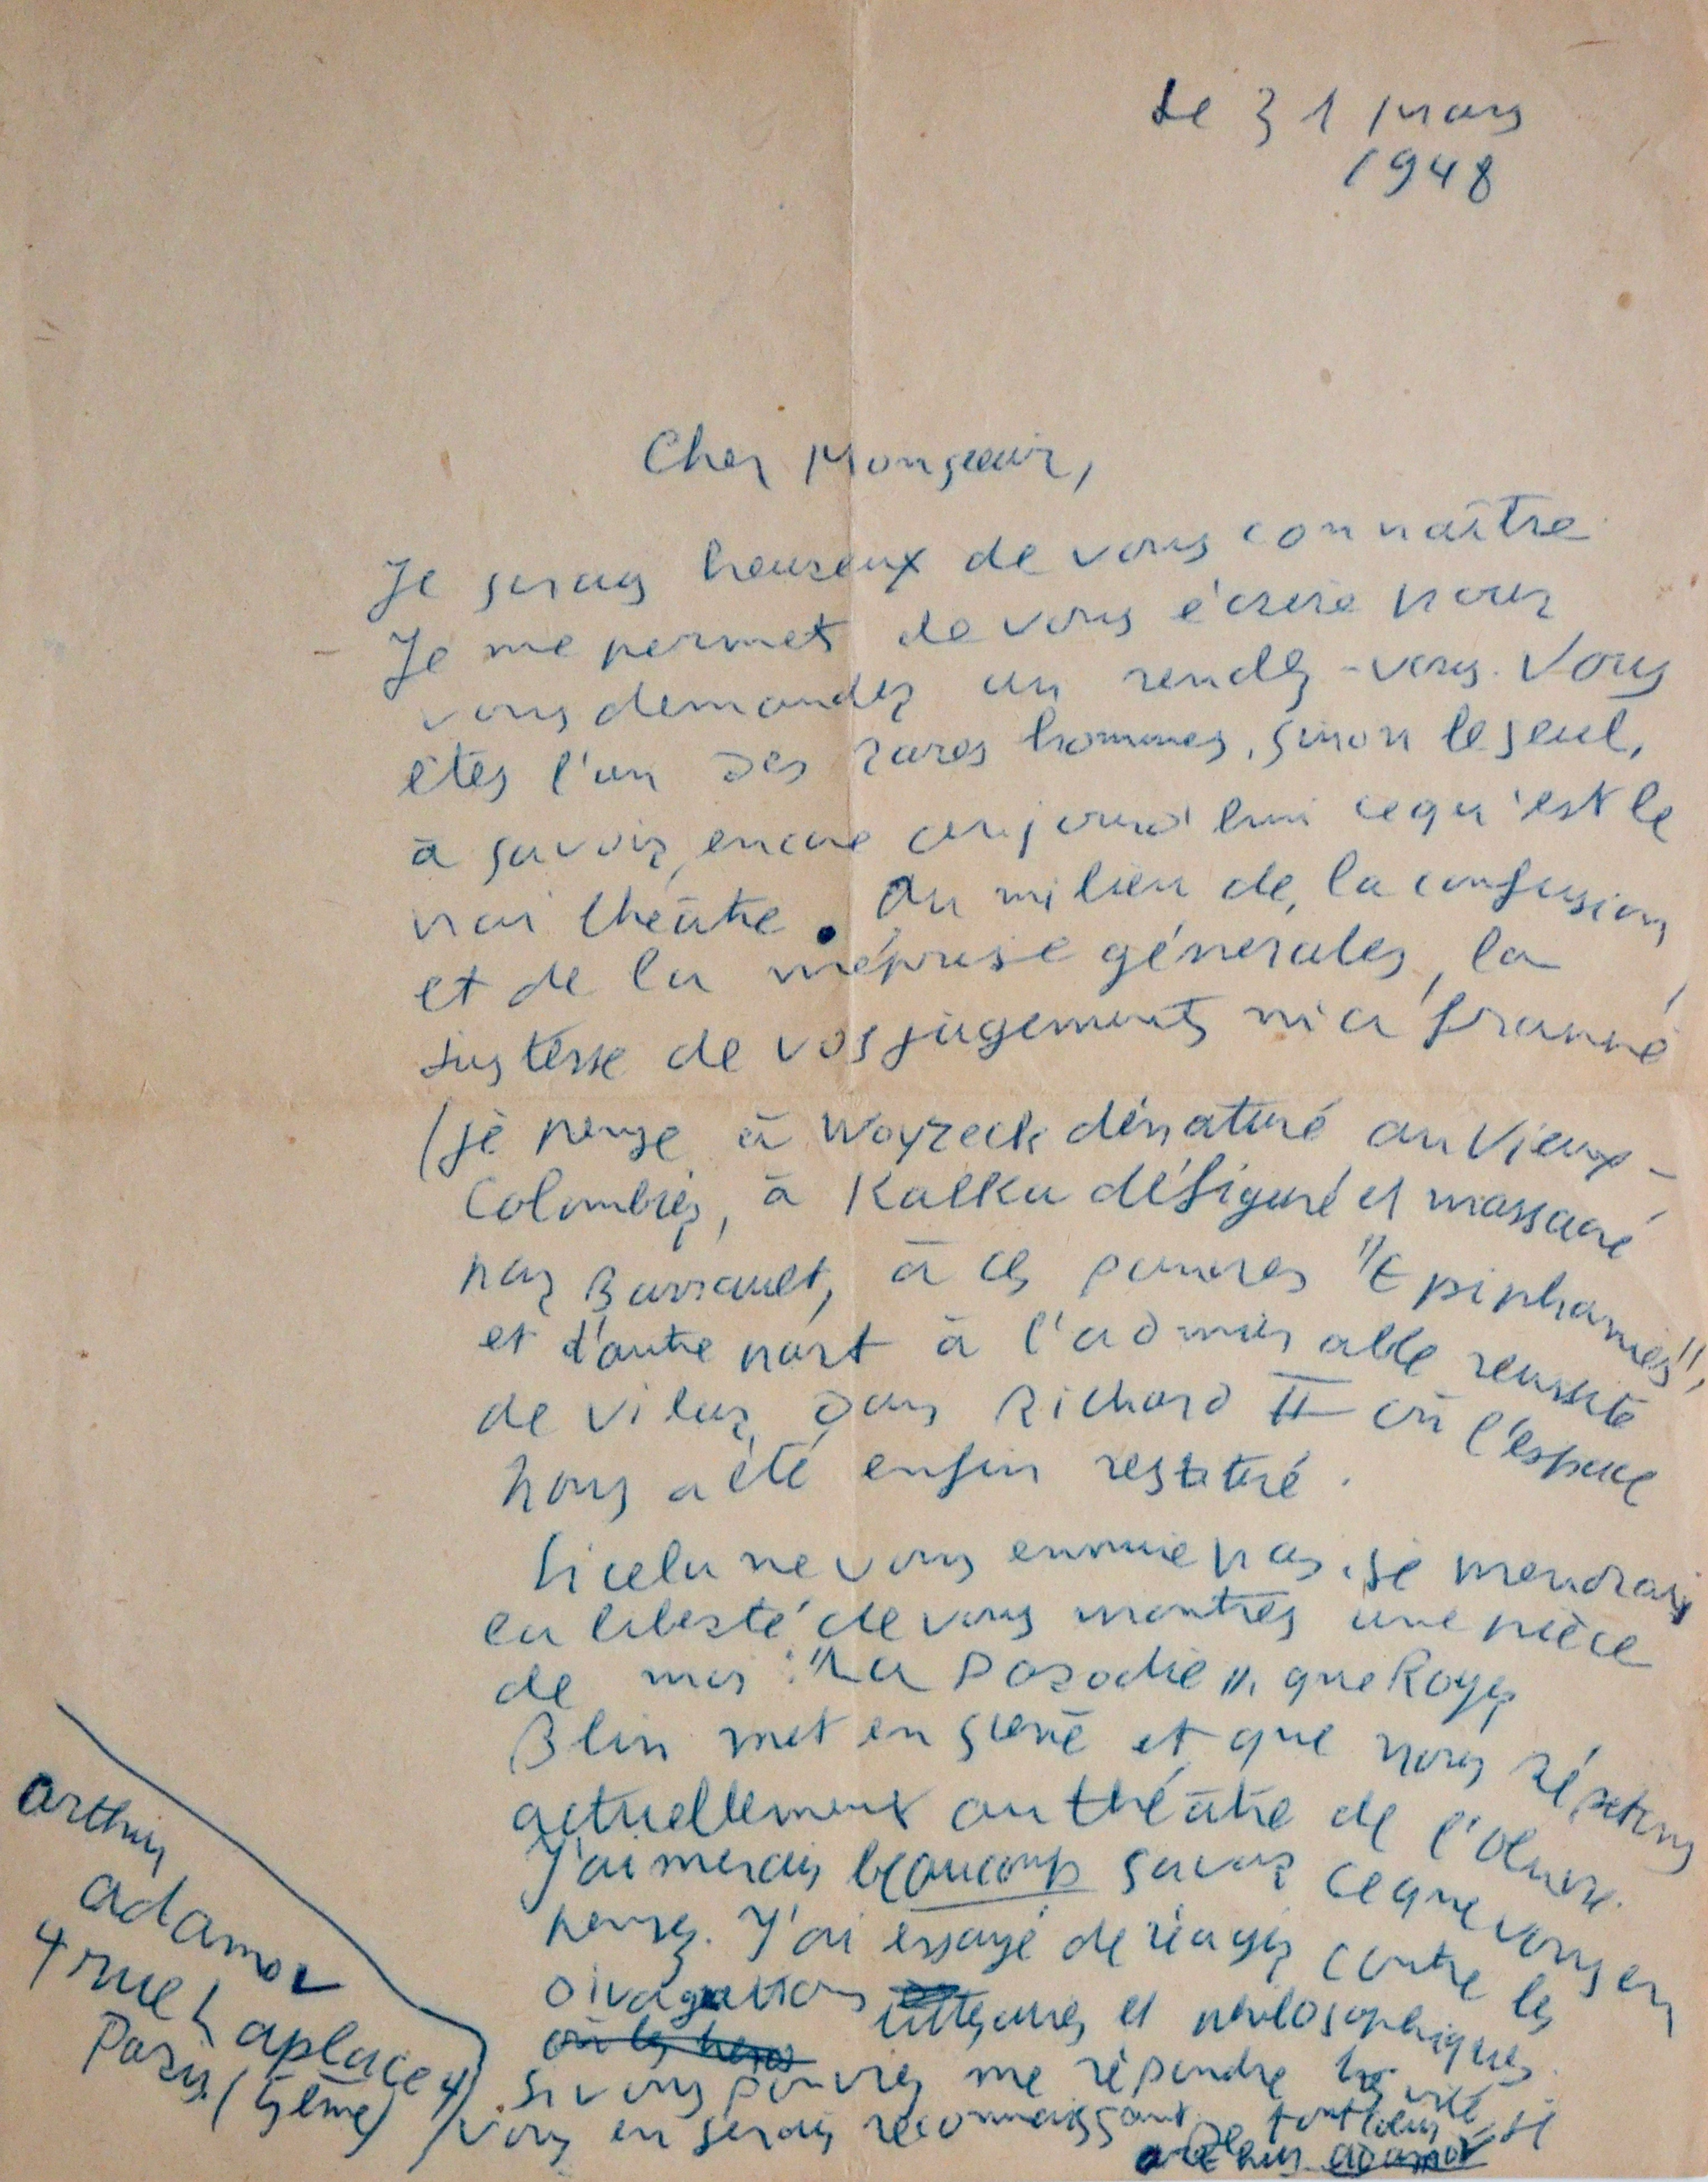 Le 31 mars
1948
Cher Monsieur,
Je serais heureux de vous connaître
Je me permets de vous écrire pour
vous demander un rendez-vous. Vous
êtes l'un des rares hommes, sinon le seul,
à savoir encore aujourd'hui ce qu'est le
vrai théâtre. Au milieu de la confusion
et de la méprise générales, la
justesse de vos jugements m'a frappé
(je pense à Woyzeck dénaturé au Vieux-
Colombier, à Kafka défiguré et massacré
par Barrault, à ces pauvres "Epiphanies",
et d'autre part à l'admirable réussite
de Vilar dans Richard II où l'espace
nous a été enfin restitué.
Si cela ne vous ennuie pas, je prendrais
la liberté de vous montrer une pièce
de moi : "La Parodie", que Roger
Blin met en scène et que nous répétons
actuellement au théâtre de l'Oeuvre.
J'aimerais beaucoup savoir ce que vous en
pensez. J'ai essayé de réagir contre les
divagations littéraires et philosophiques.
où les héros
Si vous pouviez me répondre très vite je
vous en serais reconnaissant.
Arthur Adamov
Arthur
Adamov
4 rue Laplace 4
Paris (5ème)